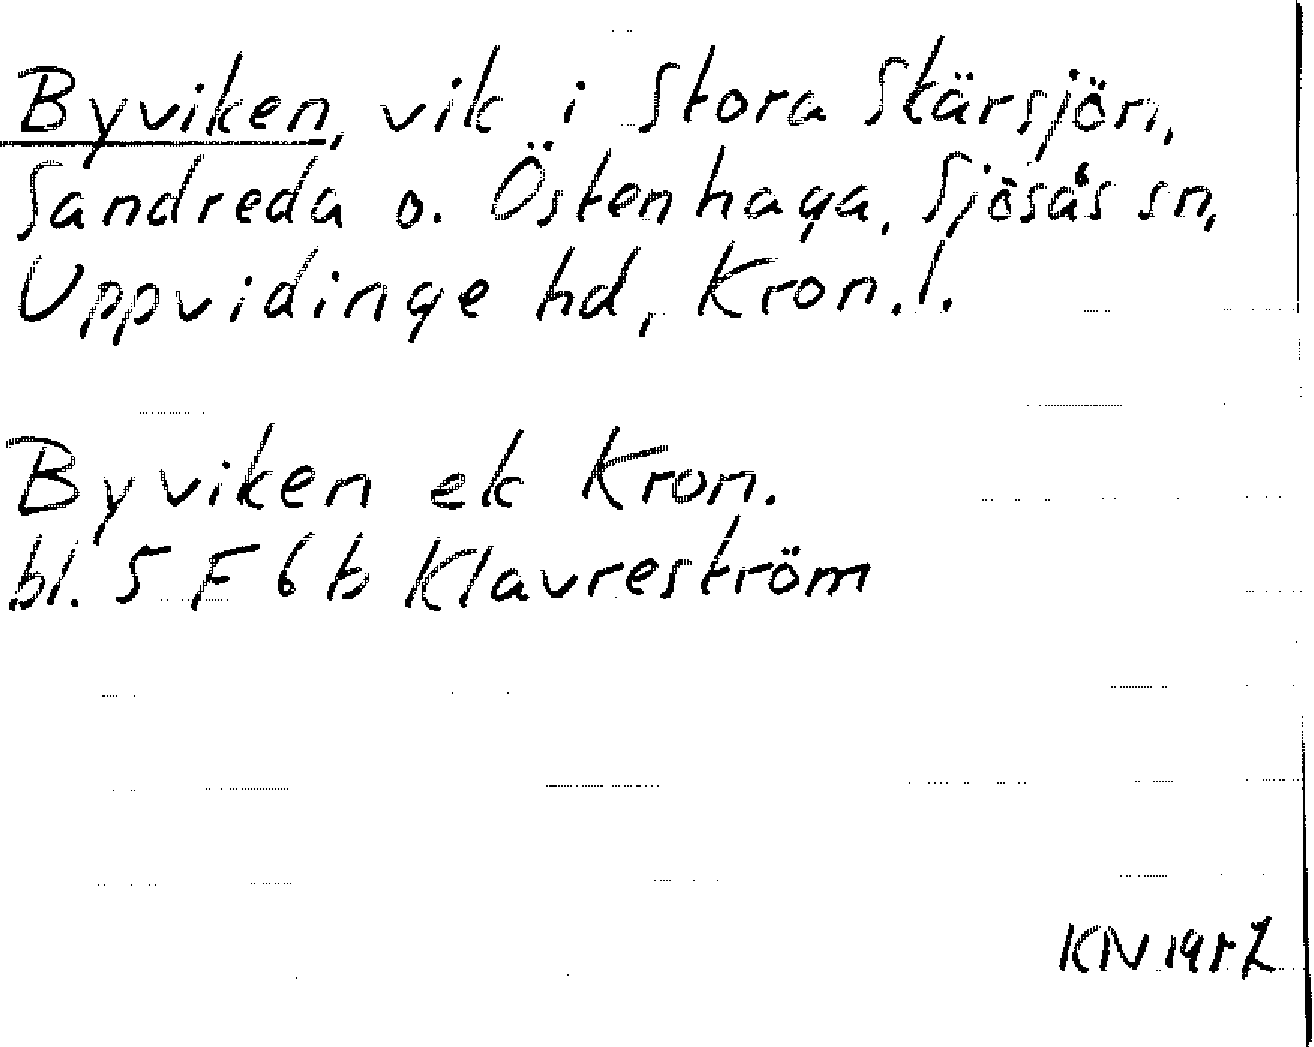 Byviken, vik i Stora Stärsjön,
Sandreda o. Östenhaga, Sjösås sn,
Uppvidinge hd, Kron. l.
Byviken ek Kron.
bl. 5 F 6 b Klavreström
KN